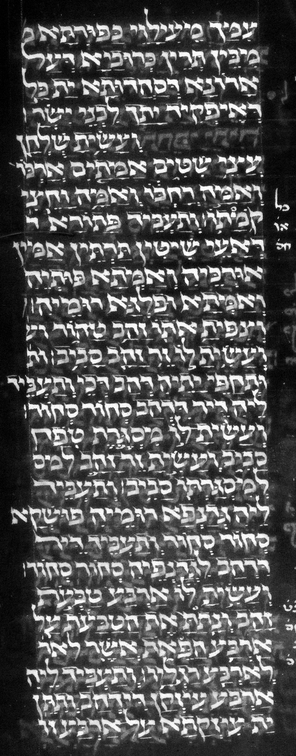 עמך מעילוי כפורתא מ
מבין תרין כרוביא דעל
ארונא דסהדותא ית כל
דאיפקיד יתך לבני ישר
ועשית שלחן
עצי שטים אמתים ארכו
ואמה רחבו ואמה וחצי
קמתו ותעביד פתורא ד
דאעי שיטין תרתין אמין
אורכיה ואמתא פותיה
ואמתא ופלגא רומיה
וצפית אתו זהב טהור וע
ועשית לו זר זהב סביב ות
ותחפי יתיה דהב דכי ותעביד
ליה דיר דדהב סחור סחור
ועשית לו מסגרת טפח
סביב ועשית זר זהב למס
למסגרתו סביב ותעביד
ליה גדנפא רומיה פושכא
סחור סחור ותעביד דיר
דדהב לגדנפיה סחור סחור
ועשית לו ארבע טבעת
זהב ונתת את הטבעת על
ארבע הפאת אשר לאר
לארבע רגליו ותעביד ליה
ארבע עיזקן דדהב ותתן
ית עזקתא על ארבע זוי